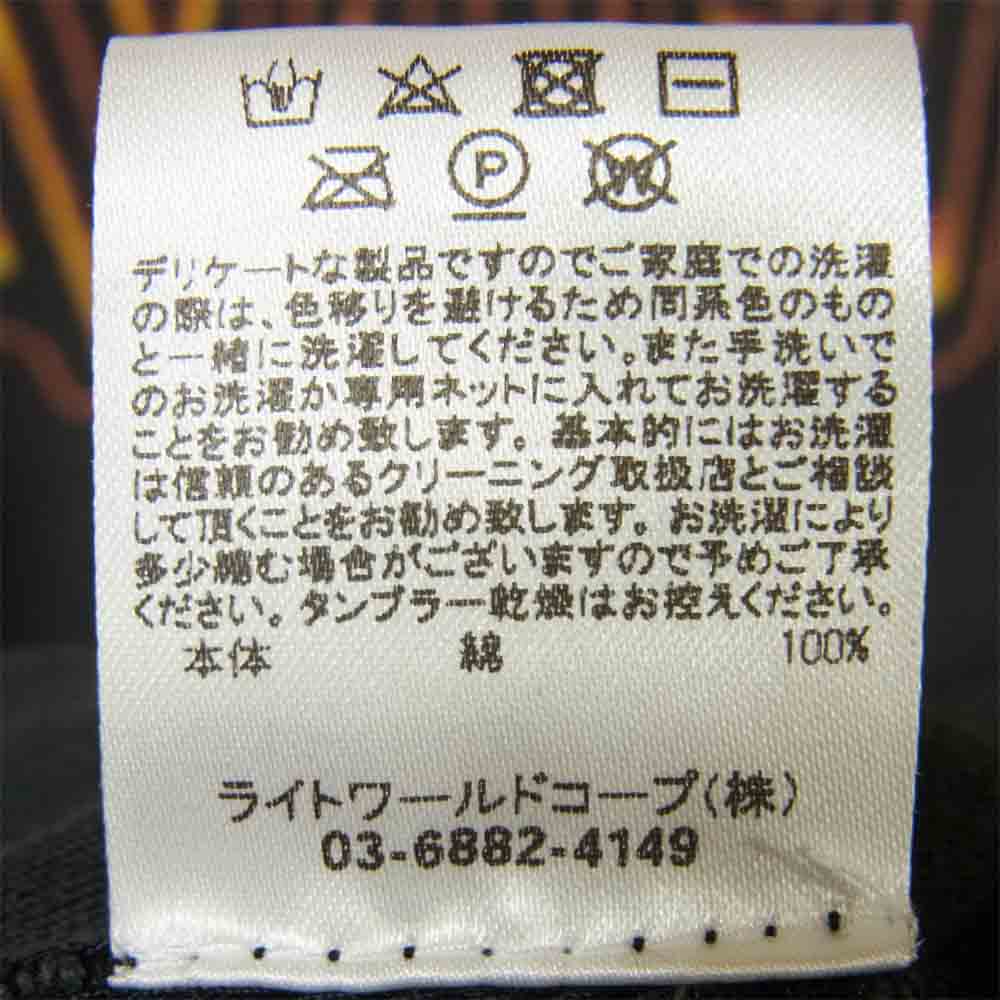 P
W
デリケートな製品ですのでご家庭での洗濯
の際は、色移りを避けるため同系色のもの
と一緒に洗濯してください。また手洗いで
のお洗濯か専用ネットに入れてお洗濯する
ことをお勧め致します。基本的にはお洗濯
は信頼のあるクリーニング取扱店とご相談
して頂くことをお勧め致します。お洗濯により
多少縮む場合がございますので予めご了承
ください。タンブラー乾燥はお控えください。
本体 綿 100%
ライトワールドコープ(株)
03-6882-4149